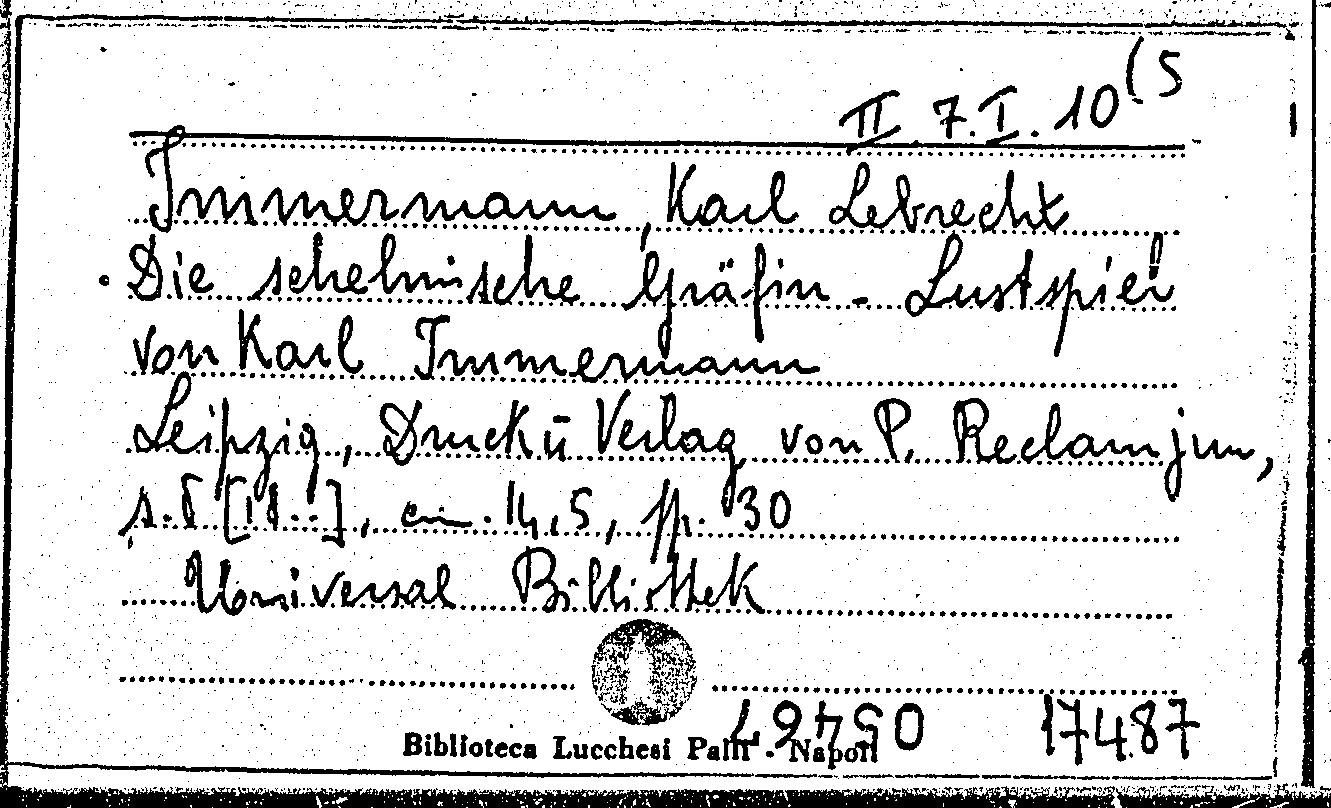 II. 7. I. 10 (5
Immermann, Karl Lebrecht
Die schelmische Gräfin - Lustspiel
von Karl Immermann
Leipzig, Druck ū Verlag von P. Reclam jun,
s. d [18..], cm. 14,5, pp. 30
Universal Bibliothek
17487
Biblioteca Lucchesi Palli - Napoli